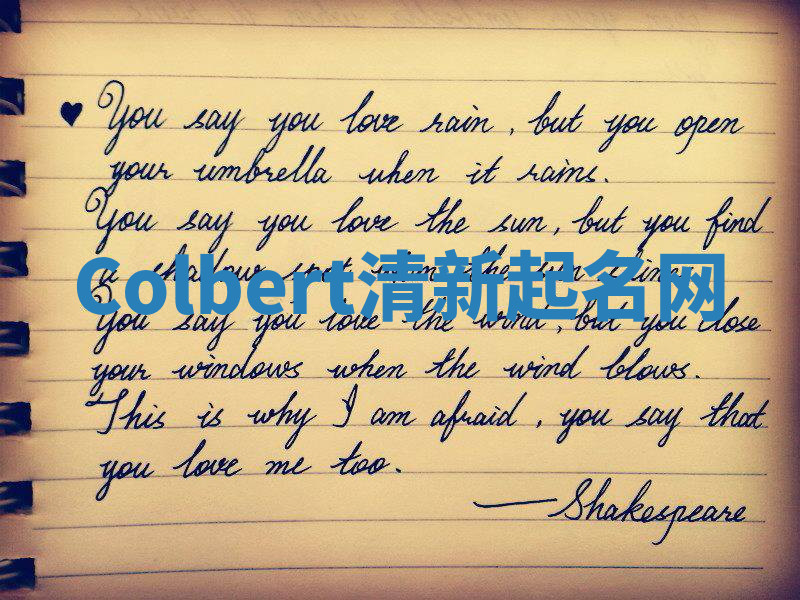 ♥ You say you love rain, but you open
your umbrella when it rains.
You say you love the sun, but you find
a shadow spot when the sun shines.
Colbert清新起名网
You say you love the wind, but you close
your windows when the wind blows.
This is why I am afraid, you say that
you love me too.
—Shakespeare